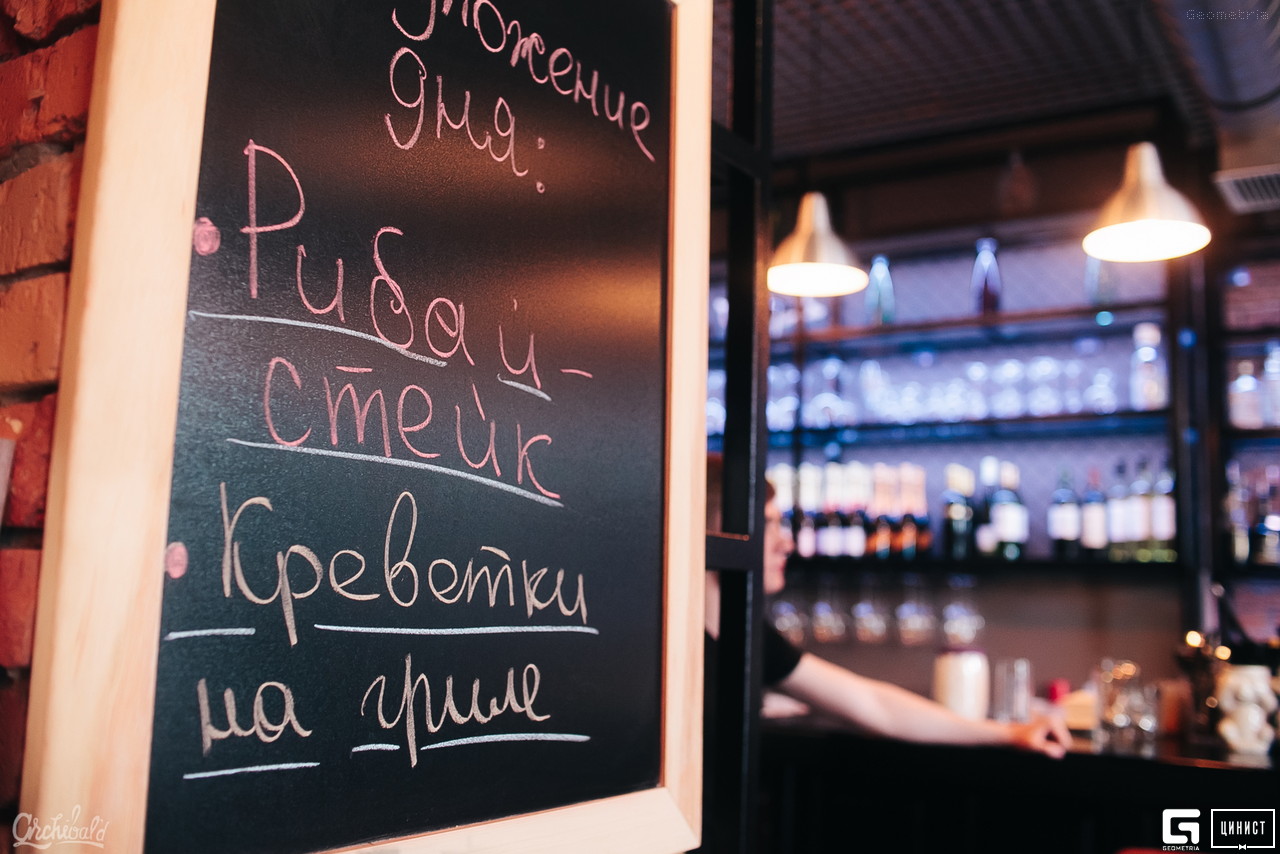 ложение
дня:
Рибай-
стейк
Креветки
на гриле
Geometria
Archibald
GEOMETRIA
ЦИНИСТ